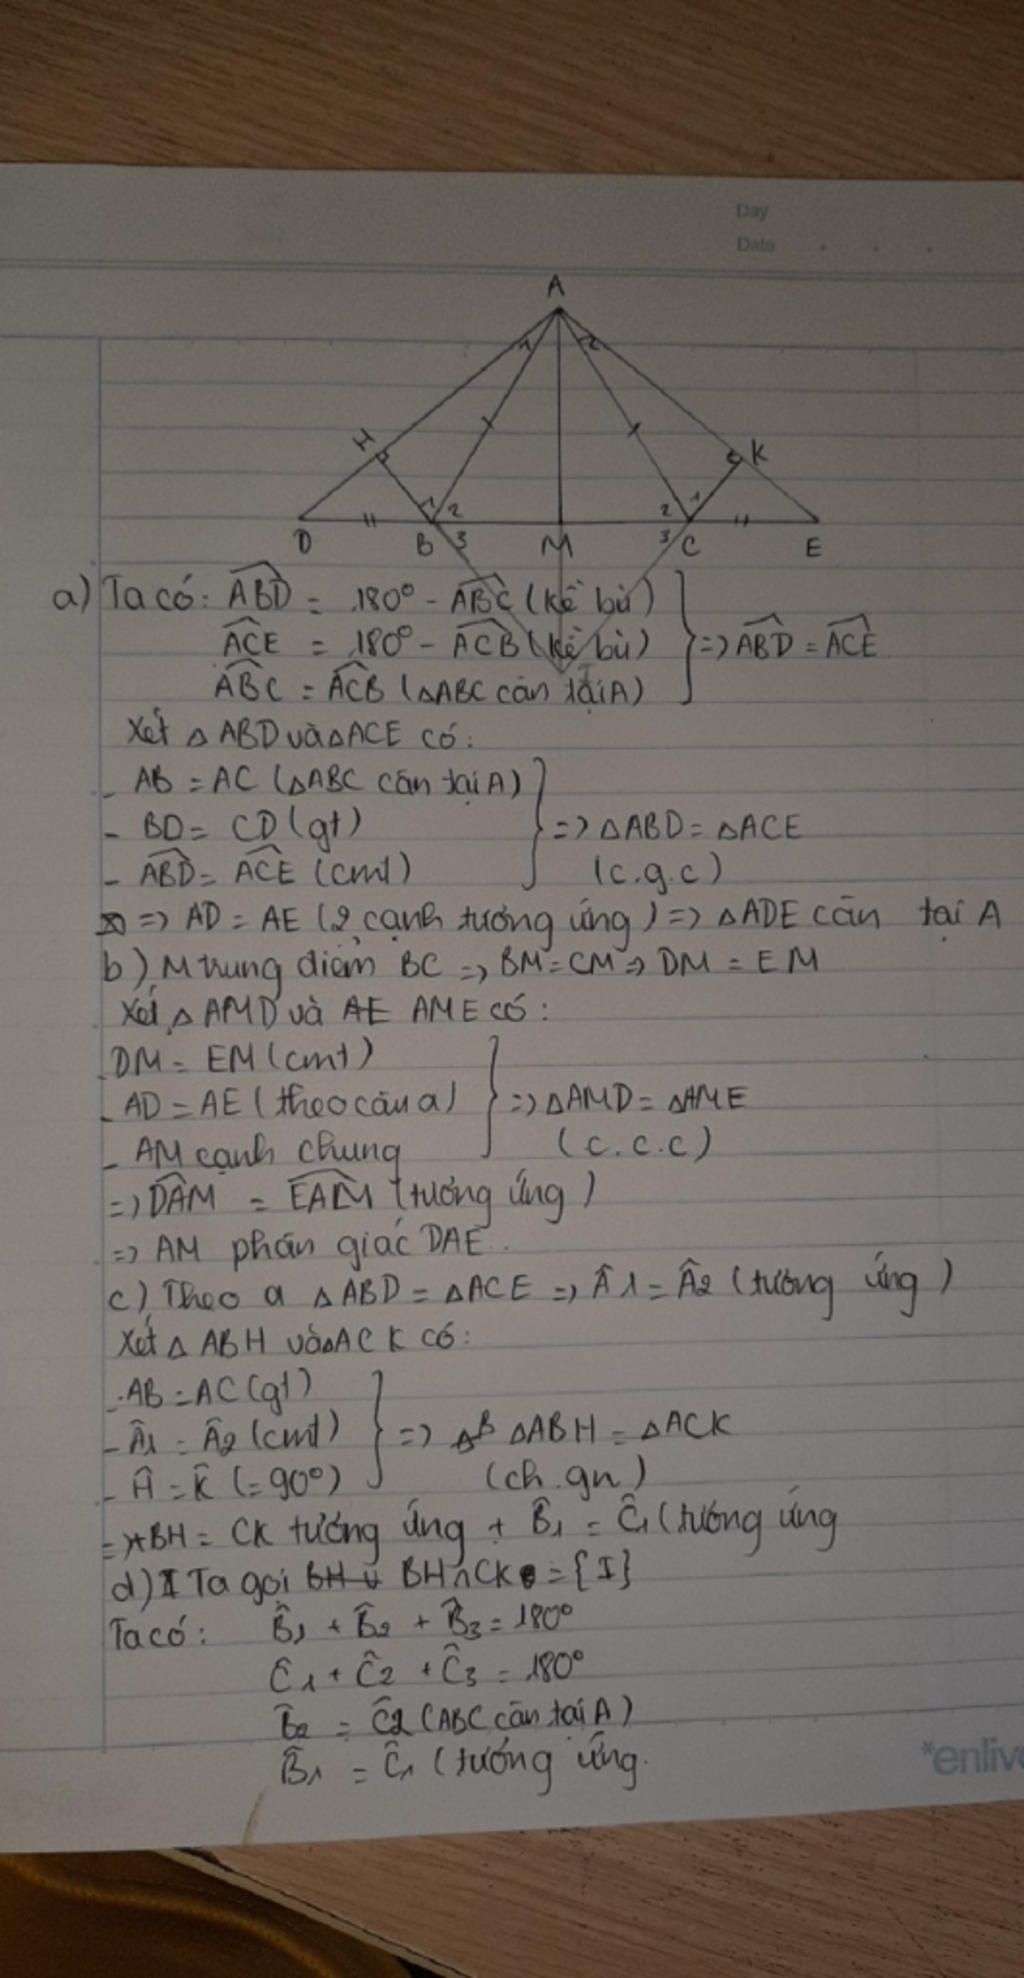 Day
Date
A
1 2
H K
1 2 2 1
D B 3 M 3 C E
I
a) Ta có: ABD = 180° - ABC (kề bù)
ACE = 180° - ACB (kề bù) => ABD = ACE
ABC = ACB (△ABC cân tại A)
Xét △ ABD và △ACE có:
- AB = AC (△ABC cân tại A)
- BD = CD (gt) => △ABD = △ACE
- ABD = ACE (cmt) (c.g.c)
=> AD = AE (2 cạnh tương ứng) => △ADE cân tại A
b) M trung điểm BC => BM = CM => DM = EM
Xét △ AMD và AE AME có:
- DM = EM (cmt)
- AD = AE (theo câu a) => △AMD = △AME
- AM cạnh chung (c.c.c)
=> DAM = EAM (tương ứng)
=> AM phân giác DAE.
c) Theo a △ABD = △ACE => Â1 = Â2 (tương ứng)
Xét △ ABH và △ACK có:
- AB = AC (gt)
- Â1 = Â2 (cmt) => △B △ABH = △ACK
- Ĥ = K̂ (= 90°) (ch.gn)
=> * BH = CK tương ứng + B̂1 = Ĉ1 (tương ứng
d) I Ta gọi BH ∪ BH∩CK = {I}
Ta có: B̂1 + B̂2 + B̂3 = 180°
Ĉ1 + Ĉ2 + Ĉ3 = 180°
B̂2 = Ĉ2 (ABC cân tại A)
B̂1 = Ĉ1 (tương ứng.
*enliv